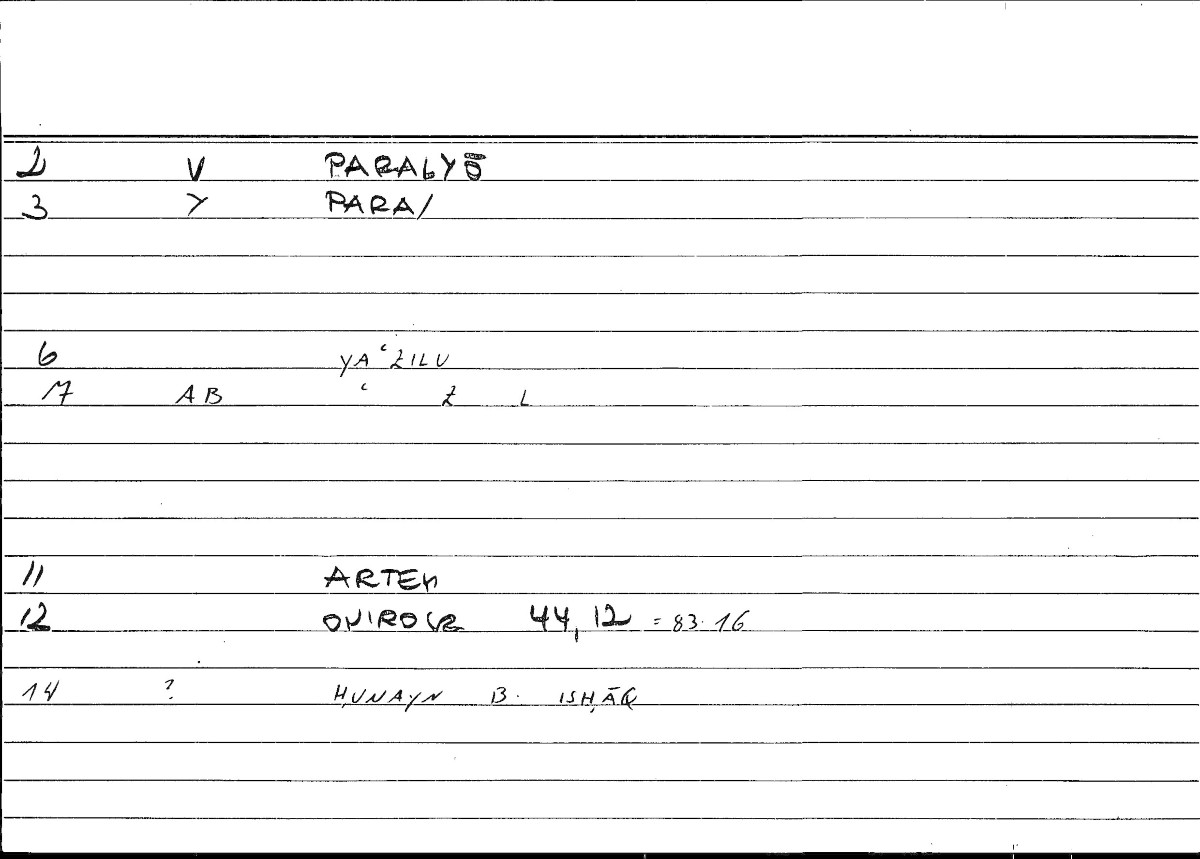 2 V PARALYŌ
3 Y PARA/
6 YAʿẒILU
17 AB ʿ Ẓ L
11 ARTEM
12 ONIROCR 44,12 = 83.16
14 ? ḤUNAYN B. ISḤĀQ